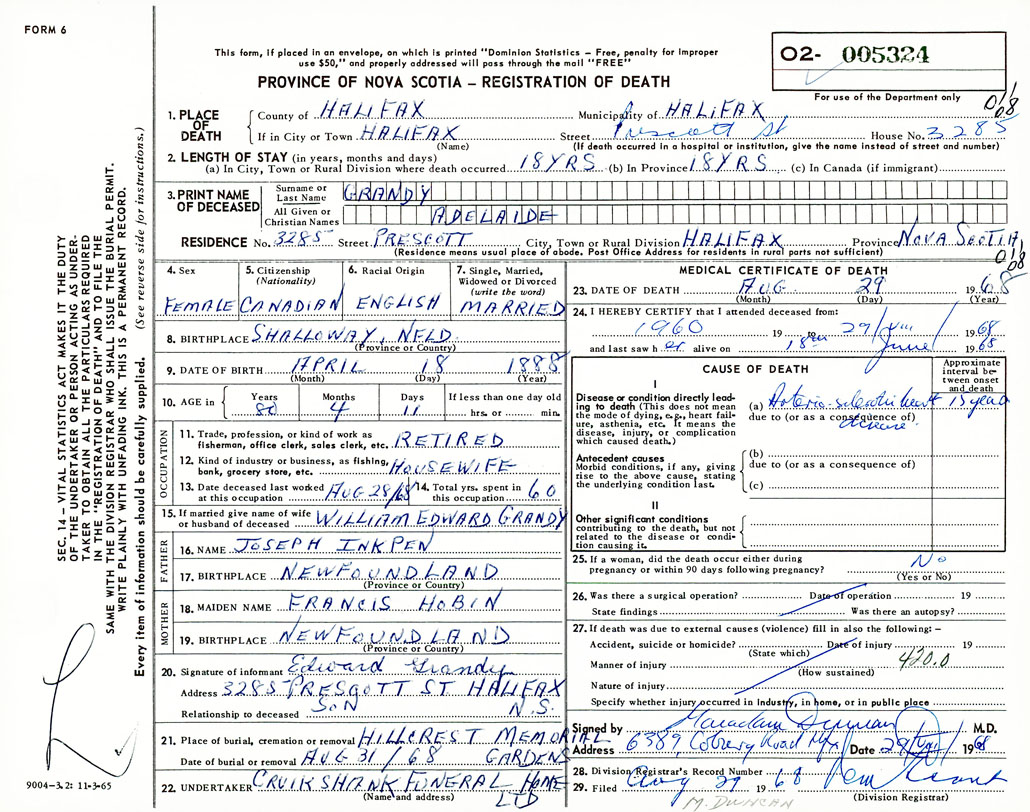 FORM 6
This form, if placed in an envelope, on which is printed "Dominion Statistics – Free, penalty for improper
use $50," and properly addressed will pass through the mail "FREE"
O2- 005324
PROVINCE OF NOVA SCOTIA – REGISTRATION OF DEATH
For use of the Department only
1. PLACE OF DEATH County of HALIFAX Municipality of HALIFAX
If in City or Town HALIFAX (Name) Street Prescott St House No. 3285
(If death occurred in a hospital or institution, give the name instead of street and number)
2. LENGTH OF STAY (in years, months and days)
(a) In City, Town or Rural Division where death occurred 18 YRS (b) In Province 18 YRS. (c) In Canada (if immigrant)
3. PRINT NAME OF DECEASED Surname or Last Name GRANDY
All Given or Christian Names ADELAIDE
RESIDENCE No. 3285 Street PRESCOTT City, Town or Rural Division HALIFAX Province NOVA SCOTIA
(Residence means usual place of abode. Post Office Address for residents in rural parts not sufficient)
018
008
4. Sex FEMALE
5. Citizenship (Nationality) CANADIAN
6. Racial Origin ENGLISH
7. Single, Married, Widowed or Divorced (write the word) MARRIED
8. BIRTHPLACE SHALLOWAY, NFLD. (Province or Country)
9. DATE OF BIRTH APRIL (Month) 18 (Day) 1888 (Year)
10. AGE in Years 80 Months 4 Days 11 If less than one day old hrs. or min.
OCCUPATION
11. Trade, profession, or kind of work as fisherman, office clerk, sales clerk, etc. RETIRED
12. Kind of industry or business, as fishing, bank, grocery store, etc. HOUSEWIFE
13. Date deceased last worked at this occupation AUG 28/68
14. Total yrs. spent in this occupation 60
15. If married give name of wife or husband of deceased WILLIAM EDWARD GRANDY
FATHER
16. NAME JOSEPH INKPEN
17. BIRTHPLACE NEWFOUNDLAND (Province or Country)
MOTHER
18. MAIDEN NAME FRANCIS HOBIN
19. BIRTHPLACE NEWFOUNDLAND (Province or Country)
20. Signature of informant Edward Grandy
Address 3285 PRESCOTT ST HALIFAX N.S.
Relationship to deceased SON
21. Place of burial, cremation or removal HILLCREST MEMORIAL GARDENS
Date of burial or removal AUG 31/68
22. UNDERTAKER CRUIKSHANK FUNERAL HOME LTD (Name and address)
MEDICAL CERTIFICATE OF DEATH
23. DATE OF DEATH AUG (Month) 29 (Day) 1968 (Year)
24. I HEREBY CERTIFY that I attended deceased from:
1960 19 to 29/VIII 1968
and last saw her alive on 18 June 1968
CAUSE OF DEATH
Approximate interval between onset and death
I
Disease or condition directly leading to death (This does not mean the mode of dying, e.g., heart failure, asthenia, etc. It means the disease, injury, or complication which caused death.)
(a) Arterio-sclerotic heart disease 15 years
due to (or as a consequence of)
Antecedent causes
Morbid conditions, if any, giving rise to the above cause, stating the underlying condition last.
(b)
due to (or as a consequence of)
(c)
II
Other significant conditions
contributing to the death, but not related to the disease or condition causing it.
25. If a woman, did the death occur either during pregnancy or within 90 days following pregnancy? No (Yes or No)
26. Was there a surgical operation? Date of operation 19
State findings Was there an autopsy?
27. If death was due to external causes (violence) fill in also the following: –
Accident, suicide or homicide? (State which) Date of injury 19
Manner of injury (How sustained) 420.0
Nature of injury
Specify whether injury occurred in Industry, in home, or in public place
Signed by Duncan M.D.
Address 6389 Coburg Road Hfx Date 29/VIII 1968
28. Division Registrar's Record Number
29. Filed Aug 29 1968 (Division Registrar)
M. DUNCAN
SEC. 14 – VITAL STATISTICS ACT MAKES IT THE DUTY
OF THE UNDERTAKER OR PERSON ACTING AS UNDER-
TAKER TO OBTAIN ALL THE PARTICULARS REQUIRED
IN THE "REGISTRATION OF DEATH" AND TO FILE THE
SAME WITH THE DIVISION REGISTRAR WHO SHALL ISSUE THE BURIAL PERMIT.
WRITE PLAINLY WITH UNFADING INK. THIS IS A PERMANENT RECORD.
Every item of information should be carefully supplied. (See reverse side for instructions.)
9004–3.2: 11-3-65